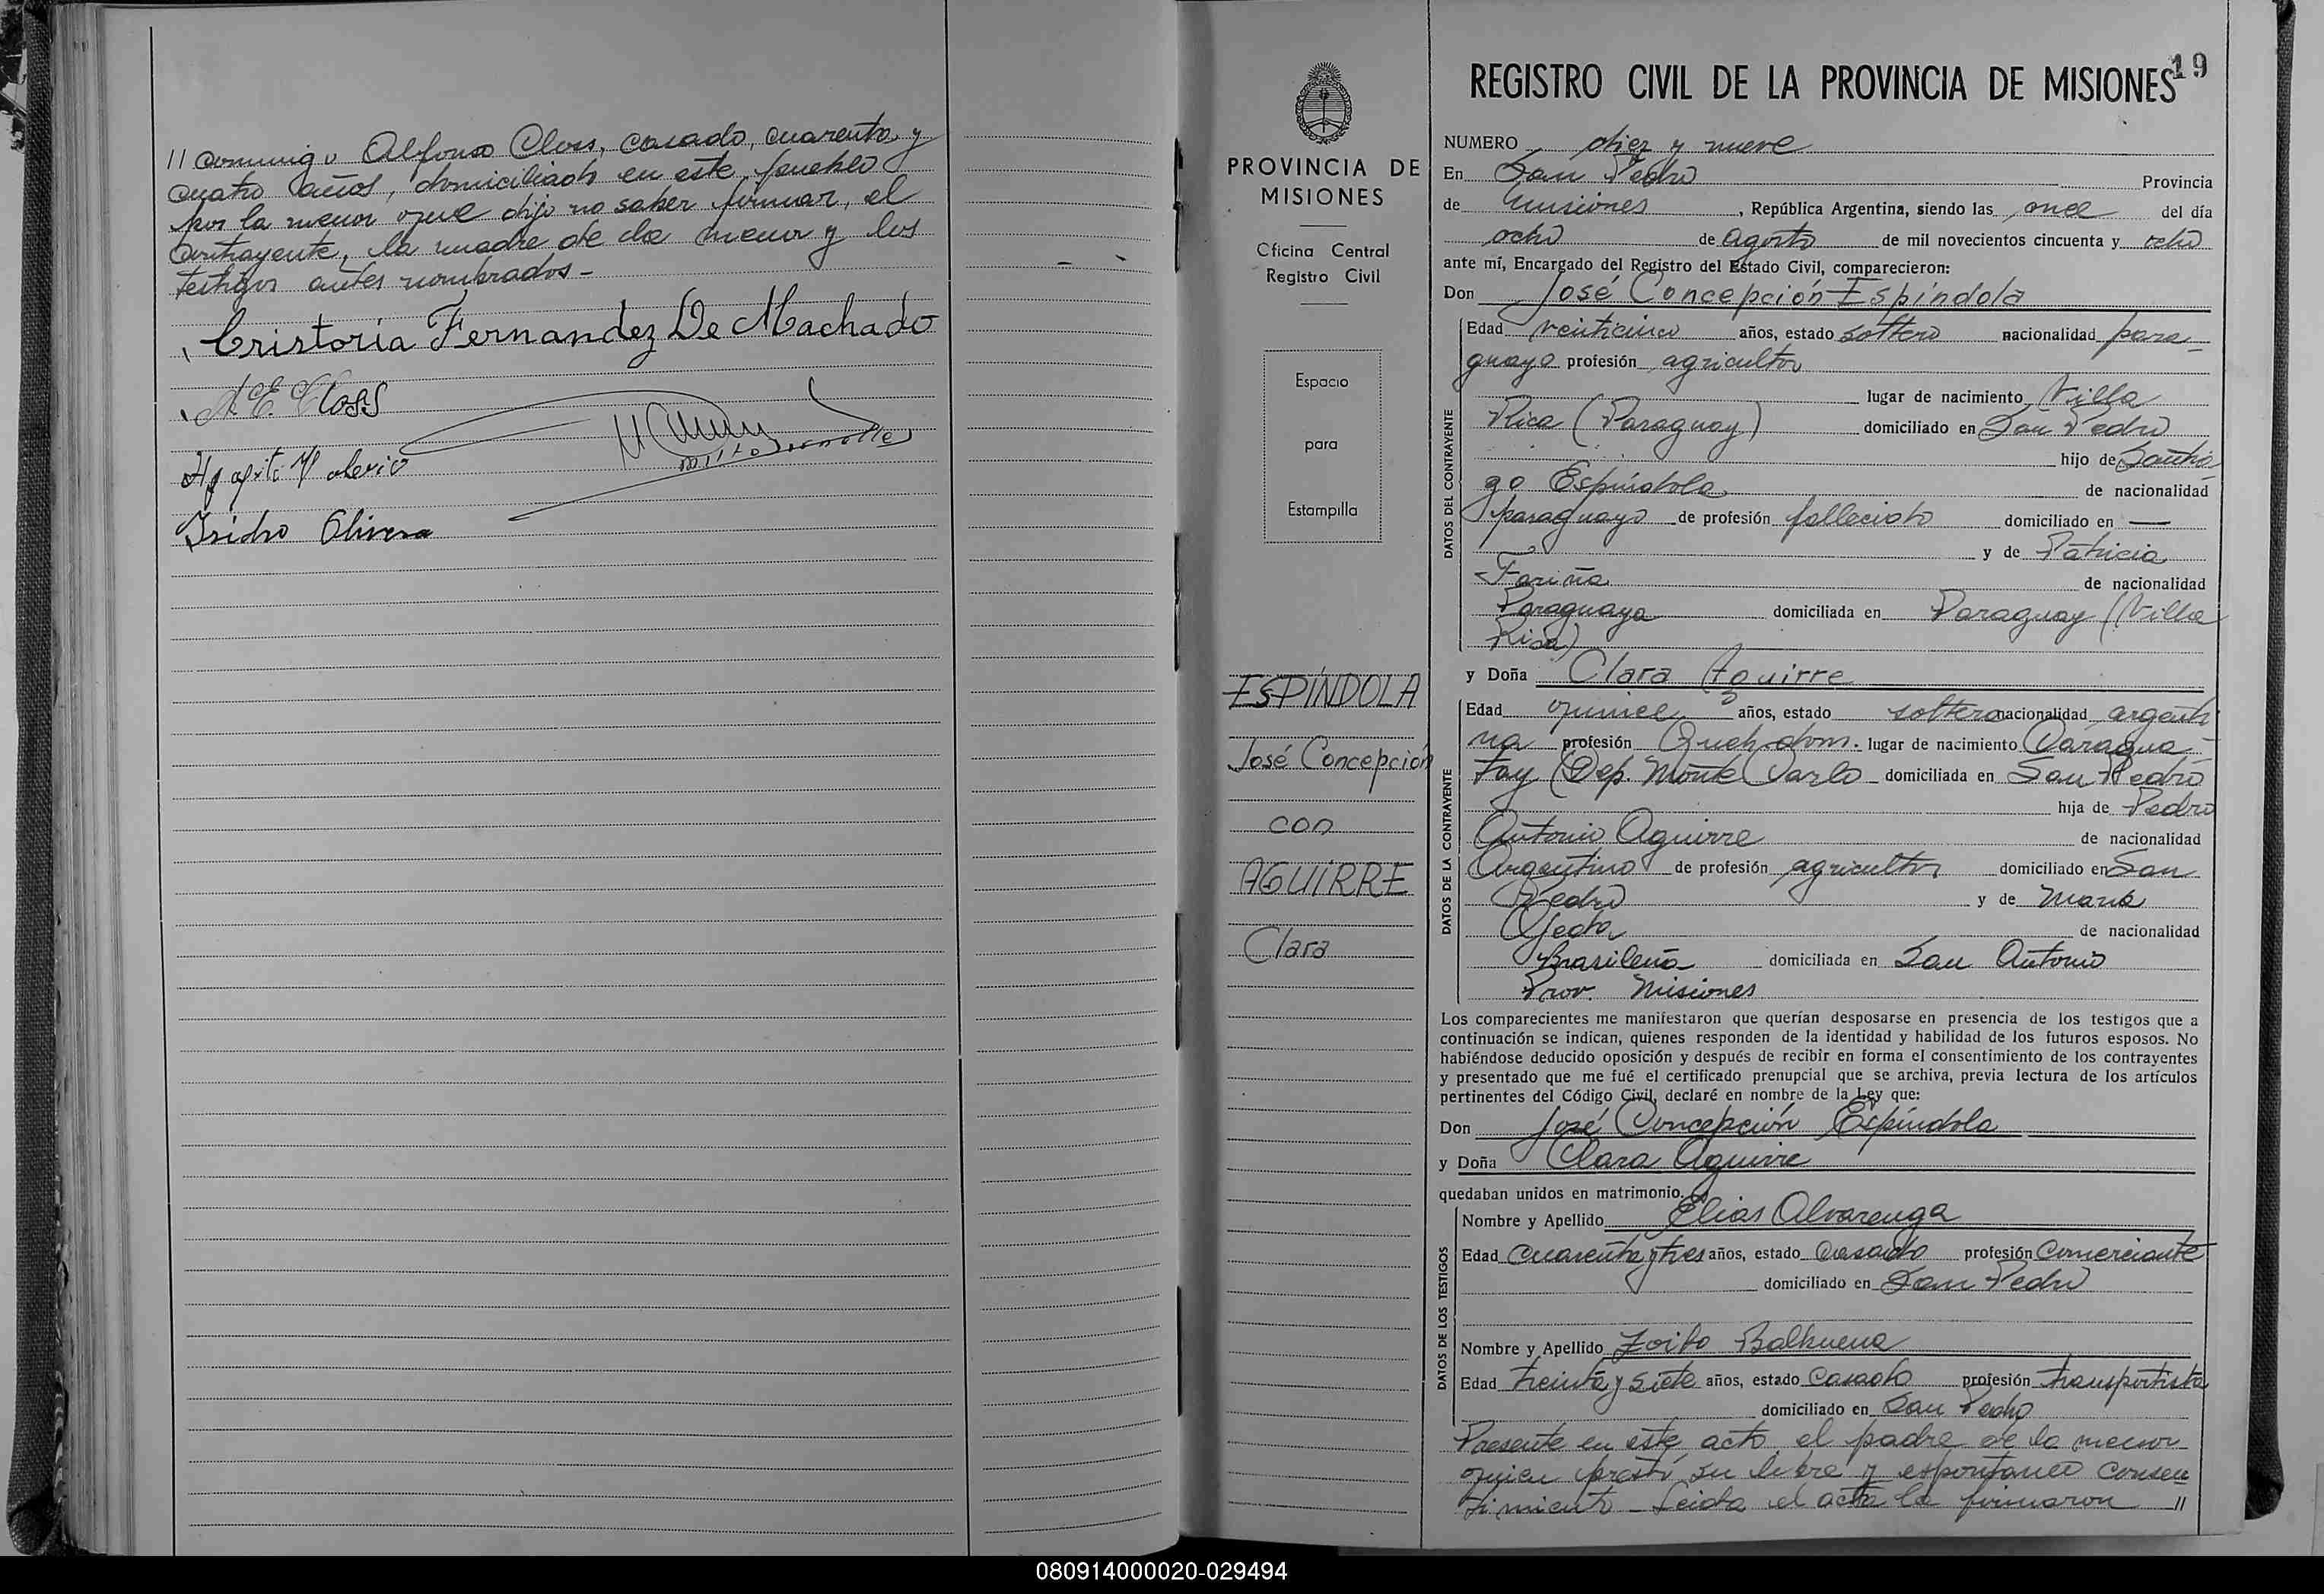 // conmigo Alfonso Closs, casado, cuarenta y
cuatro años, domiciliado en este pueblo
por la menor que dijo no saber firmar, el
contrayente, la madre de la menor y los
testigos antes nombrados-
Cristoria Fernandez De Machado
A. E. Closs
Isidro Olivera
PROVINCIA DE
MISIONES
Oficina Central
Registro Civil
Espacio
para
Estampilla
ESPÍNDOLA
José Concepción
con
AGUIRRE
Clara
REGISTRO CIVIL DE LA PROVINCIA DE MISIONES 19
NUMERO diez y nueve
En San Pedro Provincia
de Misiones, República Argentina, siendo las once del día
ocho de agosto de mil novecientos cincuenta y ocho
ante mí, Encargado del Registro del Estado Civil, comparecieron:
Don José Concepción Espíndola
DATOS DEL CONTRAYENTE
Edad veinticinco años, estado soltero nacionalidad para-
guayo profesión agricultor
lugar de nacimiento Villa
Rica (Paraguay) domiciliado en San Pedro
hijo de Santia-
go Espíndola de nacionalidad
paraguayo de profesión fallecido domiciliado en —
y de Patricia
Fariña de nacionalidad
Paraguaya domiciliada en Paraguay (Villa
Rica)
y Doña Clara Aguirre
DATOS DE LA CONTRAYENTE
Edad quince años, estado soltera nacionalidad argenti-
na profesión Queh. dom. lugar de nacimiento Caragua-
tay (Dep. Monte Carlo domiciliada en San Pedro
hija de Pedro
Antonio Aguirre de nacionalidad
Argentino de profesión agricultor domiciliado en San
Pedro y de María
Ojeda de nacionalidad
Brasileña domiciliada en San Antonio
Prov. Misiones
Los comparecientes me manifestaron que querían desposarse en presencia de los testigos que a
continuación se indican, quienes responden de la identidad y habilidad de los futuros esposos. No
habiéndose deducido oposición y después de recibir en forma el consentimiento de los contrayentes
y presentado que me fué el certificado prenupcial que se archiva, previa lectura de los artículos
pertinentes del Código Civil, declaré en nombre de la Ley que:
Don José Concepción Espíndola
y Doña Clara Aguirre
quedaban unidos en matrimonio.
DATOS DE LOS TESTIGOS
Nombre y Apellido Elias Alvarenga
Edad cuarenta y tres años, estado casado profesión Comerciante
domiciliado en San Pedro
Nombre y Apellido Zoilo Balbuena
Edad treinta y siete años, estado casado profesión transportista
domiciliado en San Pedro
Presente en este acto el padre de la menor
quien prestó su libre y espontaneo consen
timiento - Leida el acta la firmaron //
080914000020-029494